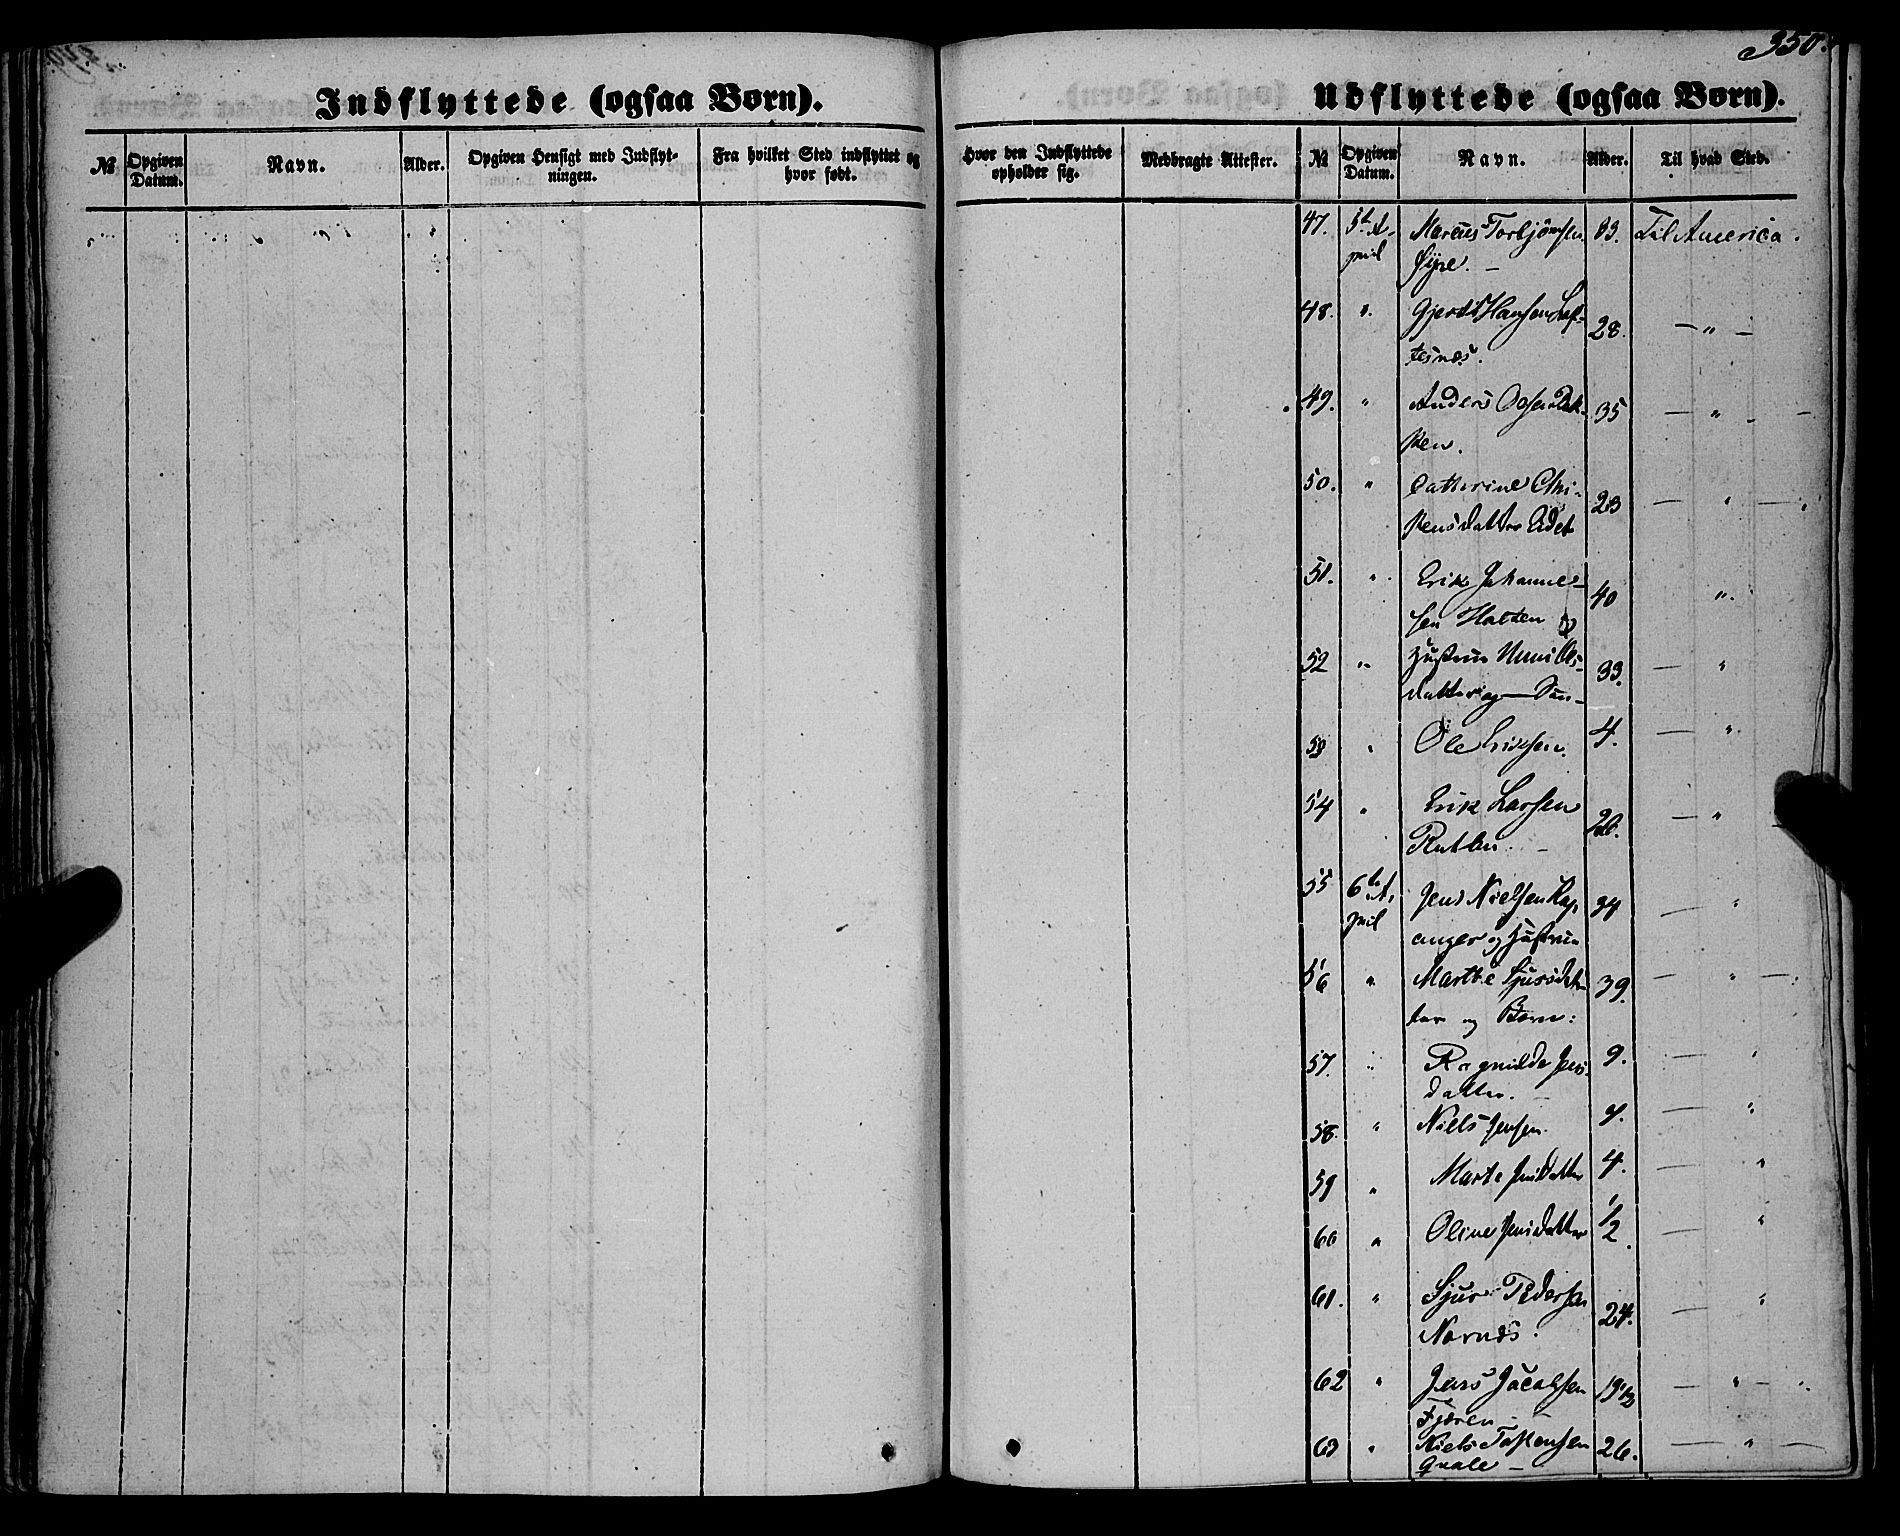 350.
Indflyttede (ogsaa Børn).
Udflyttede (ogsaa Børn).
№ Opgiven Datum. Navn. Alder. Opgiven Hensigt med Indflytningen. Fra hvilket Sted indflyttet og hvor født.
Hvor den Indflyttede opholder sig. Medbragte Attester. № Opgiven Datum. Navn. Alder. Til hvad Sted.
47. April Marcus Torbjörnsen 33. Til America.
Øyre. -
48. " Gjerdt Hansen Lof-
tesnæs. 28. - " -
49. " Anders Olsen 35 - " -
ken.
50. " Catherine Chri-
stensdatter Eidet 23 - " -
51. " Erik Johanne-
sen Hatten og 40 ".
52 " Hustrue Unni Ols-
datter og Søn - 33. - "
53 " Ole Eriksen. 4. - ".
54 " Erik Larsen
Rutlin. - 20. - "
55 6te April Jens Nielsen Kap- 34 - "
anger og Hustrue
56 " Marthe Sjursdat- 39. - " -
ter og Børn:
57. " Ragnilde Jens- 9. - "
datter. -
58. " Niels Jensen. 7. - "
59 " Marte Jensdatter 4. - "
60 " Oline Jensdatter 1/2. - "
61. " Sjur Pedersen
Nornæs. 24. - "
62 " Jens Jacobsen 19 1/2 - " -
Fjæren -
63 " Niels Tostensen 26. - " -
Quale -